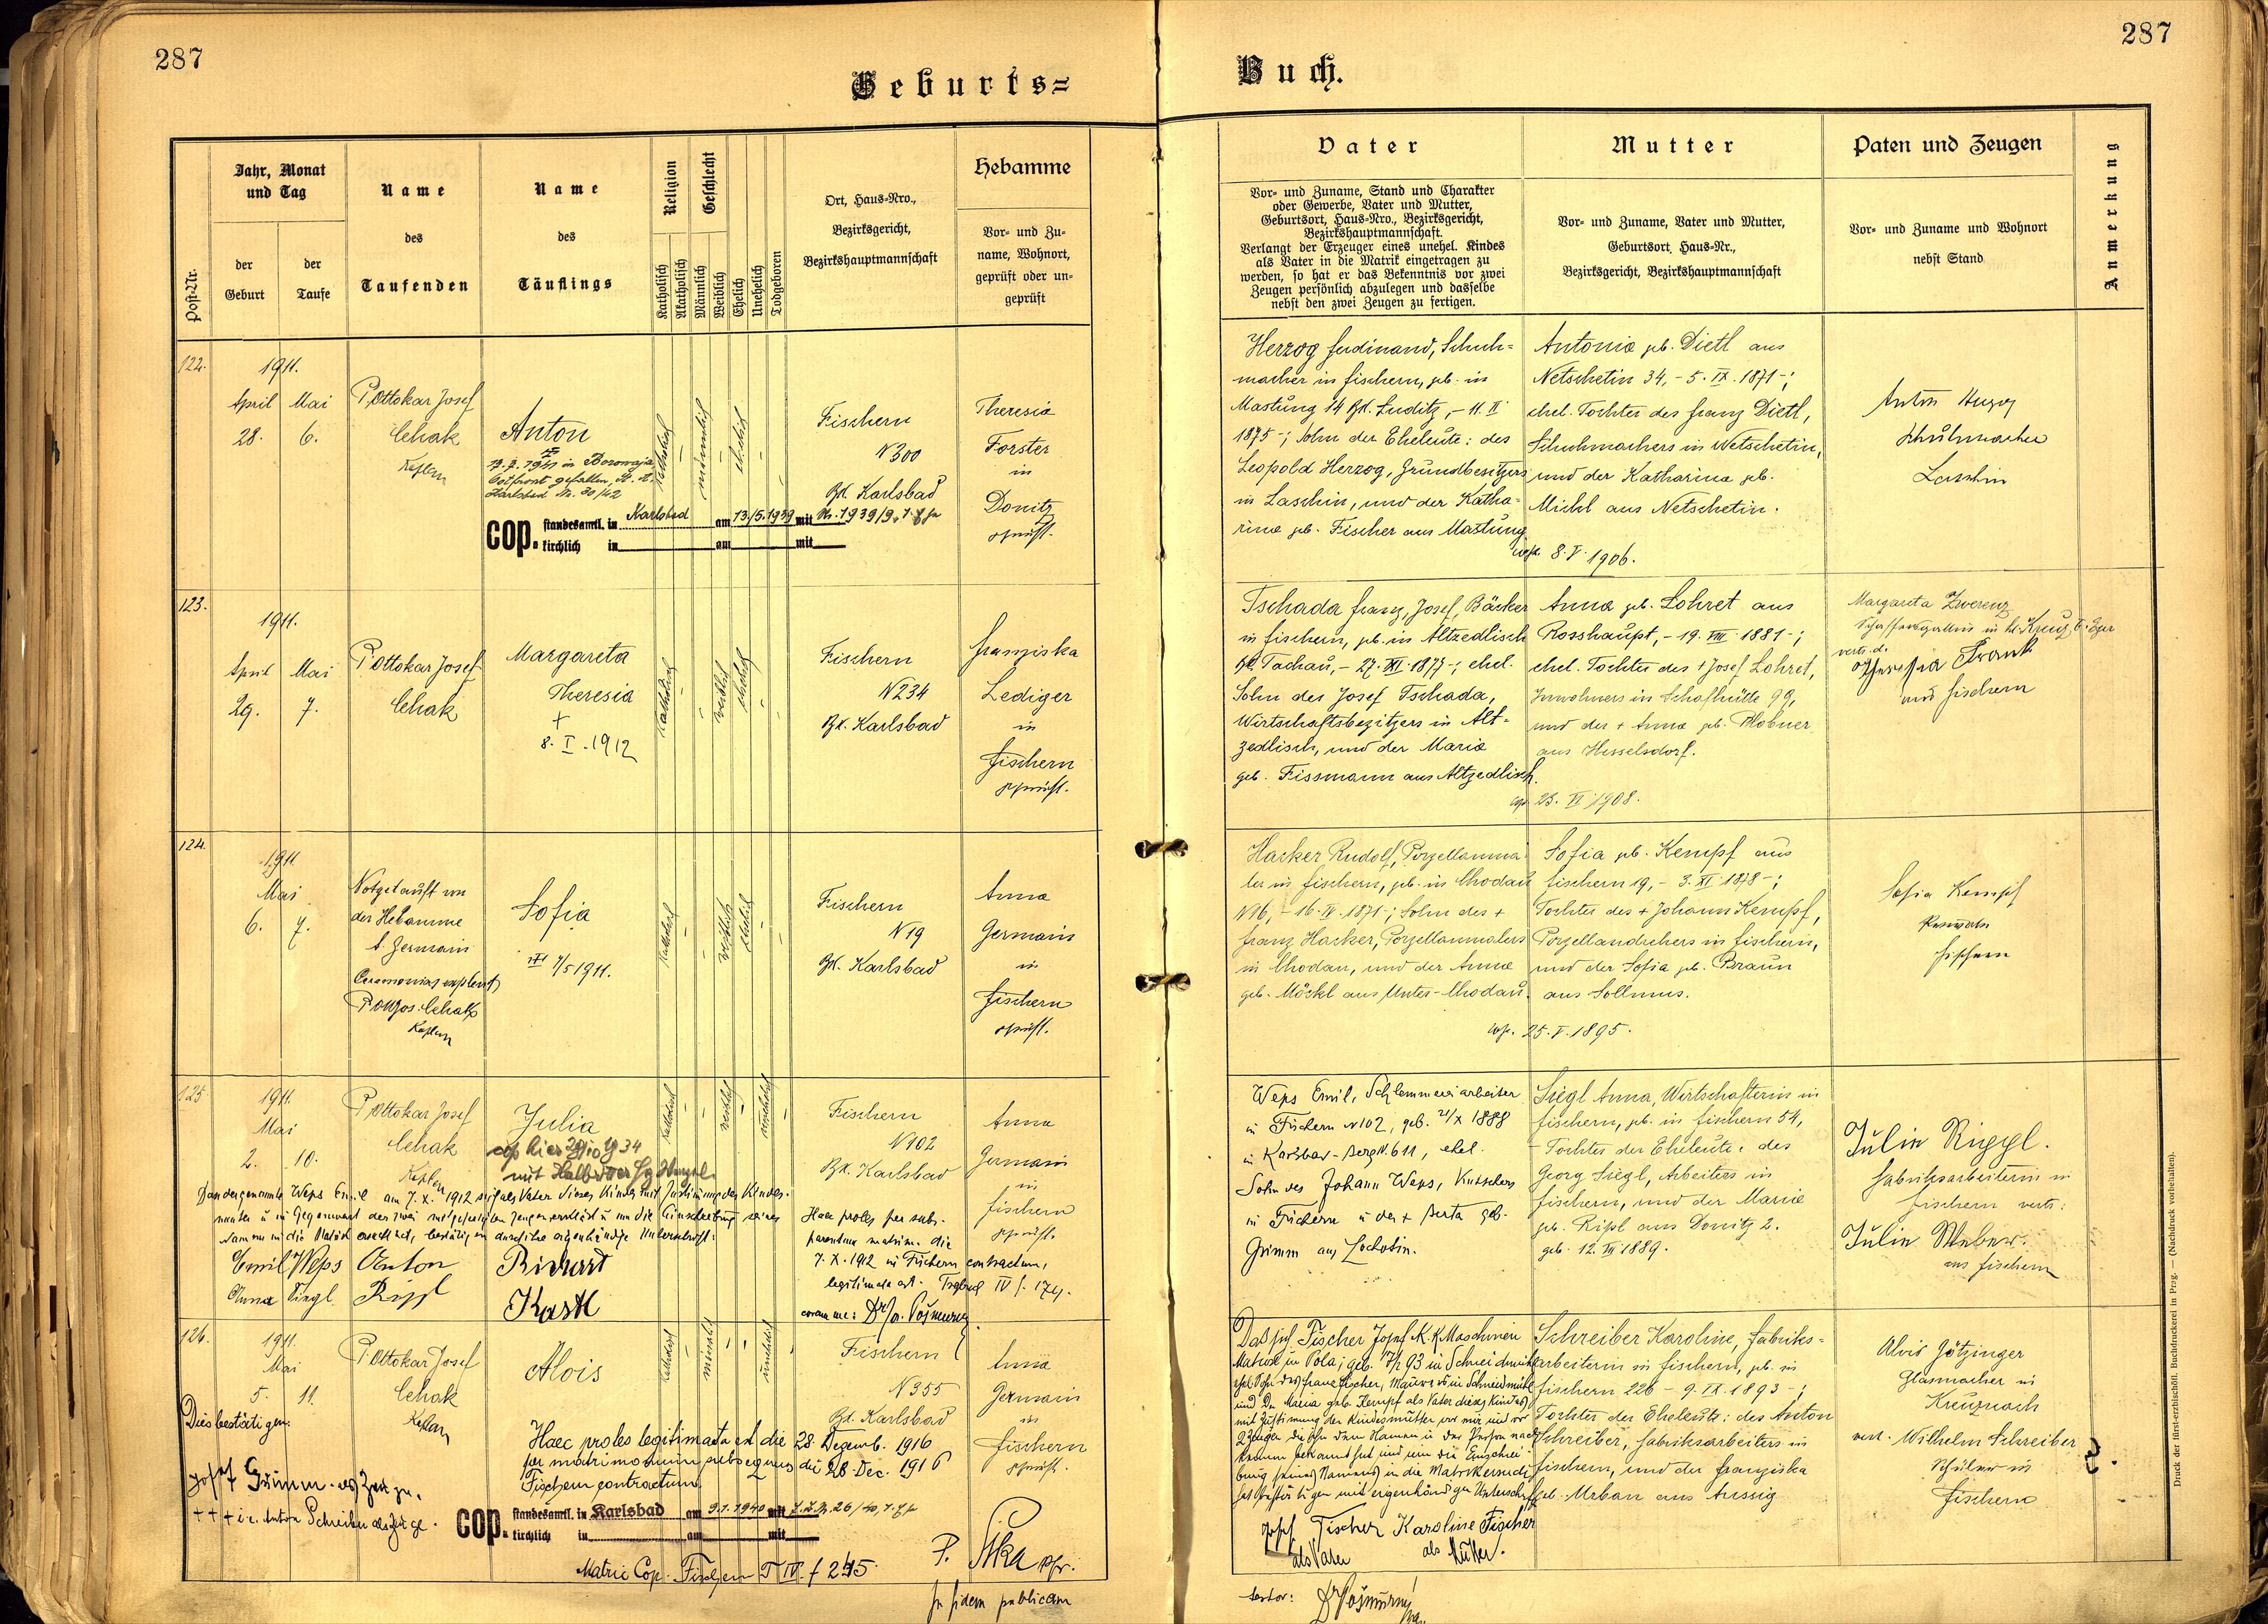 287
Geburts=
Post-Nr.
Jahr, Monat
und Tag
der
Geburt
der
Taufe
Name
des
Taufenden
Name
des
Täuflings
Religion
Katholisch
Akatholisch
Geschlecht
Männlich
Weiblich
Ehelich
Unehelich
Todgeboren
Ort, Haus-Nro.,
Bezirksgericht,
Bezirkshauptmannschaft
Hebamme
Vor- und Zu-
name, Wohnort,
geprüft oder un-
geprüft
122.
1911.
April Mai
28. 6.
P. Ottokar Josef
Cehak
Anton
in Borowaja
Ostfront gefallen, St. A.
Karlsbad Nr. 30/42
cop. standesamtl. in Karlsbad am 13/5.1939 mit
kirchlich in am mit
katholisch
männlich
ehelich
Fischern
N 300
Bz. Karlsbad
Theresia
Forster
in
Donitz
geprüft.
123.
1911.
April Mai
29. 7.
P. Ottokar Josef
Cehak
Margareta
Theresia
+
8. I. 1912
katholisch
weiblich
ehelich
Fischern
N 234
Bz. Karlsbad
Franziska
Lediger
in
Fischern
geprüft.
124.
1911
Mai
6. 7.
Notgetauft von
der Hebamme
A. Germanis
P. Ott. Jos. Cehak
Sofia
7/5 1911.
katholisch
weiblich
ehelich
Fischern
N 19
Bz. Karlsbad
Anna
Germanis
in
Fischern
geprüft.
125.
1911.
Mai
2. 10.
P. Ottokar Josef
Cehak
Julia
katholisch
weiblich
unehelich
Fischern
N 102
Bz. Karlsbad
Anna
Germanis
in
Fischern
geprüft.
Dass der genannte Weps Emil am 7. X. 1912 sich als Vater dieses Kindes mit Zustimmung der Kindes-
Emil Weps Anton Richart
Anna Siegl Rippl Kastl
Haec proles per sub-
7. X. 1912 in Fischern contractum,
legitimata est.
coram me:
126.
1911.
Mai
5. 11.
P. Ottokar Josef
Cehak
Alois
katholisch
männlich
unehelich
Fischern
N 355
Bz. Karlsbad
Anna
Germanis
in
Fischern
geprüft.
Dies bestätigen:
Haec proles legitimata est die 28. Dezemb. 1916
per matrimonium subsequens die 28. Dec. 1916
Fischern contractum.
Josef Grimm als Zeuge.
+++ i.e. Anton Schreiber als Zeuge.
cop. standesamtl. in Karlsbad am 9.1.1940 mit
kirchlich in am mit
Matric Cop. Fischern T IV. f 245.
In fidem publicam
287
Buch.
Vater
Vor- und Zuname, Stand und Charakter
oder Gewerbe, Vater und Mutter,
Geburtsort, Haus-Nro., Bezirksgericht,
Bezirkshauptmannschaft.
Verlangt der Erzeuger eines unehel. Kindes
als Vater in die Matrik eingetragen zu
werden, so hat er das Bekenntnis vor zwei
Zeugen persönlich abzulegen und dasselbe
nebst den zwei Zeugen zu fertigen.
Mutter
Vor- und Zuname, Vater und Mutter,
Geburtsort, Haus-Nr.,
Bezirksgericht, Bezirkshauptmannschaft
Paten und Zeugen
Vor- und Zuname und Wohnort
nebst Stand
Anmerkung
Herzog Ferdinand, Schuh=
macher in Fischern, geb. in
Mastung 14 Bz. Luditz, - 11. II
1875 -; Sohn der Eheleute: des
Leopold Herzog, Grundbesitzers
in Laschin, und der Katha=
rina geb. Fischer aus Mastung.
cop. 8. V. 1906.
Antonia geb. Dietl aus
Netschetin 34, - 5. IX. 1871 -;
ehel. Tochter des Franz Dietl,
Schuhmachers in Netschetin,
und der Katharina geb.
Michl aus Netschetin.
Anton
Schuhmacher
Laschin
Tschada Franz, Josef, Bäcker
in Fischern, geb. in Altzedlisch
Bz. Tachau, - 27. XI. 1877 -; ehel.
Sohn des Josef Tschada,
Wirtschaftsbesitzers in Alt-
zedlisch, und der Maria
geb. Fissmann aus Altzedlisch.
cop. 23. VI. 1908.
Anna geb. Lohret aus
Rosshaupt, - 19. VIII. 1881 -;
ehel. Tochter des + Josef Lohret,
Inwohners in Schafhütte 99,
und der + Anna geb.
aus Hesselsdorf.
Margareta Zwerenz
vertr. d.
Theresia Frank
aus Fischern
Hacker Rudolf, Porzellanma-
ler in Fischern, geb. in Chodau
N 16, - 16. IV. 1871 -; Sohn des +
Franz Hacker, Porzellanmalers
in Chodau, und der Anna
geb. Möckl aus Unter-Chodau.
cop. 25. V. 1895.
Sofia geb. Kempf aus
Fischern 19, - 3. XI. 1878 -;
Tochter des + Johann Kempf,
Porzellandrehers in Fischern,
und der Sofia geb. Braun
aus Sollmus.
Sofia Kempf
Fischern
Weps Emil, Schlemmereiarbeiter
in Fischern N 102, geb. 21/X 1888
in Karlsbad-Berg N. 611, ehel.
Sohn des Johann Weps, Kutschers
in Fischern u. der + Berta geb.
Grimm aus Lochotin.
Siegl Anna, Wirtschafterin in
Fischern, geb. in Fischern 54,
- Tochter der Eheleute: des
Georg Siegl, Arbeiters in
Fischern, und der Marie
geb. Rippl aus Donitz 2.
geb. 12. III 1889.
Julie Rippl.
Fabriksarbeiterin in
Fischern vertr:
Julie Weber.
aus Fischern
Daß sich Fischer Josef K. K. Maschinen
Matrose in Pola; geb. in Schneidmühl
ehel. Sohn des Franz Fischer, Maurers in Schneidmühl
und der Maria geb. Kempf als Vater dieses Kindes
mit Zustimmung der Kindesmutter vor mir und vor
2 Zeugen
Josef Fischer Karoline Fischer
als Vater als Mutter.
Schreiber Karoline, Fabriks=
arbeiterin in Fischern, geb. in
Fischern 226 - 9. IX. 1893 -;
Tochter der Eheleute: des Anton
Schreiber, Fabriksarbeiters in
Fischern, und der Franziska
geb. Urban aus Aussig
Alois Götzinger
Glasmacher in
Kreuznach
vert. Wilhelm Schreiber
Schüler in
Fischern
testor:
Druck der fürst-erzbischöfl. Buchdruckerei in Prag. — (Nachdruck vorbehalten).